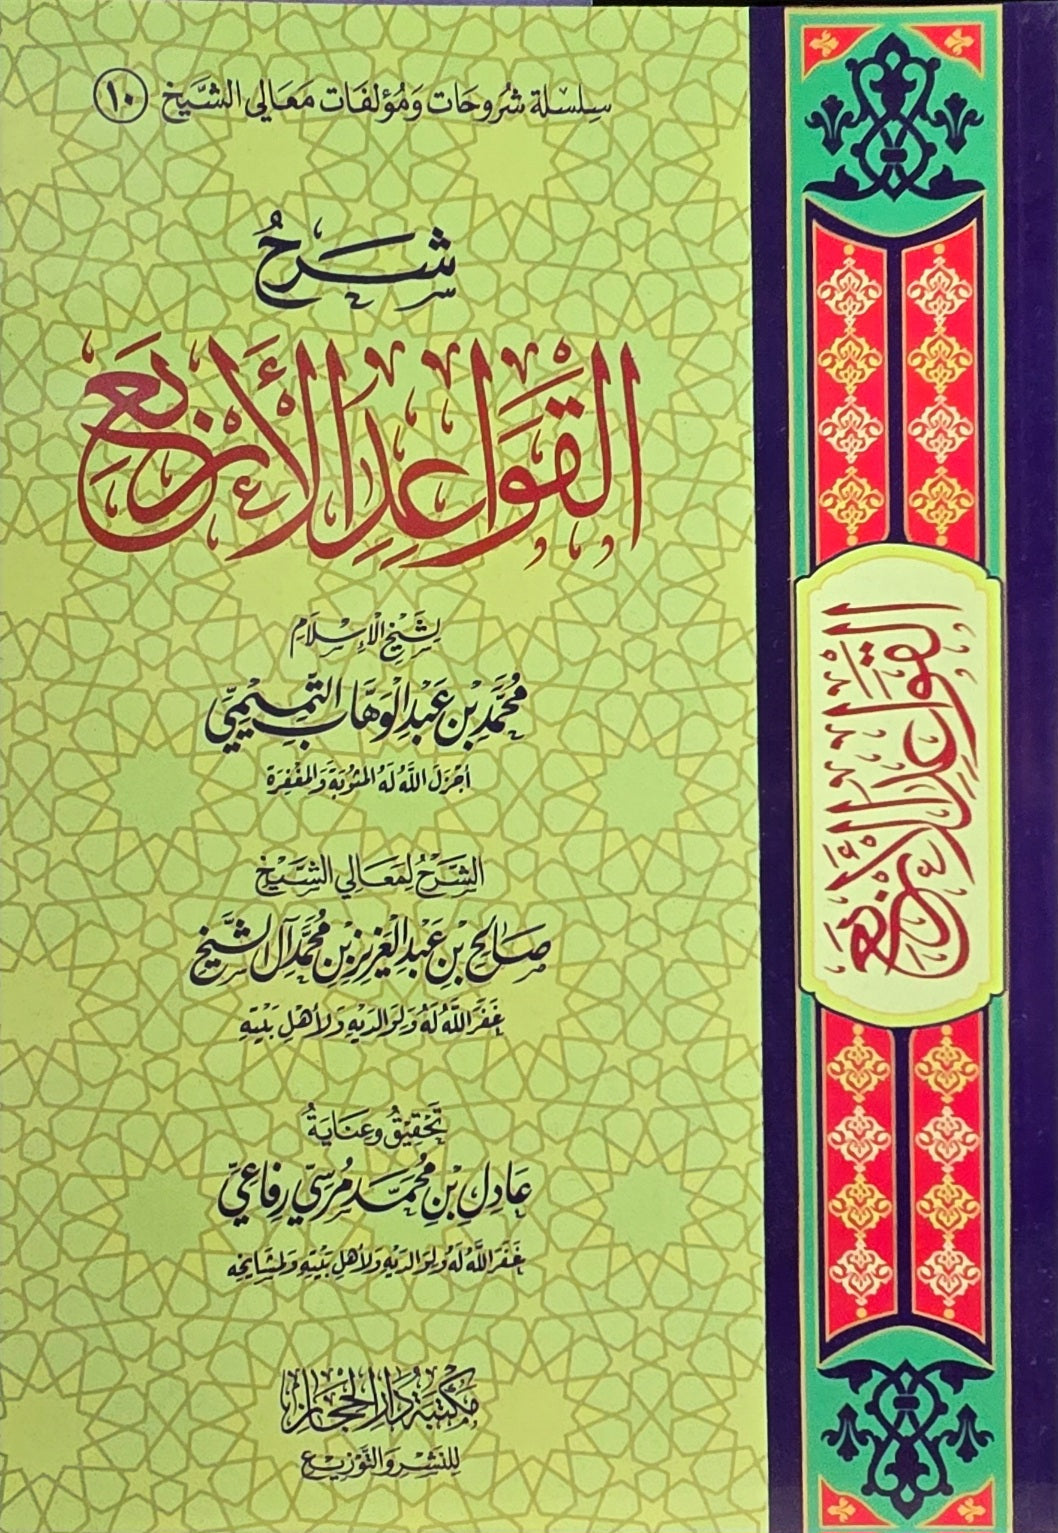 سِلسلة شُروحَات وَمُؤلفَات مَعَالي الشَّيخ ١٠
شَرحُ
القَوَاعِدِ الأَرْبَعِ
لِشَيْخِ الْإِسْلَامِ
مُحَمَّدِ بْنِ عَبْدِ الْوَهَّابِ التَّمِيمِيِّ
أَجْزَلَ اللَّهُ لَهُ المَثُوبَةَ وَالمَغْفِرَةَ
الشَّرْحُ لِمَعَالِي الشَّيْخِ
صَالِحِ بْنِ عَبْدِ الْعَزِيزِ بْنِ مُحَمَّدٍ آلِ الشَّيْخِ
غَفَرَ اللَّهُ لَهُ وَلِوَالدَيْهِ وَلِأَهْلِ بَيْتِهِ
تَحْقِيقُ وَعِنَايَةُ
عَادِلِ بْنِ مُحَمَّد مُرسِيّ رِفَاعِيّ
غَفَرَ اللَّهُ لَهُ وَلِوَالدَيْهِ وَلِأَهْلِ بَيْتِهِ وَلِمَشَايِخِهِ
مَكْتَبَةُ دَارِ الْحِجَازِ
لِلنَّشْرِ وَالتَّوْزِيع
القَوَاعِدِ الأَرْبَعِ